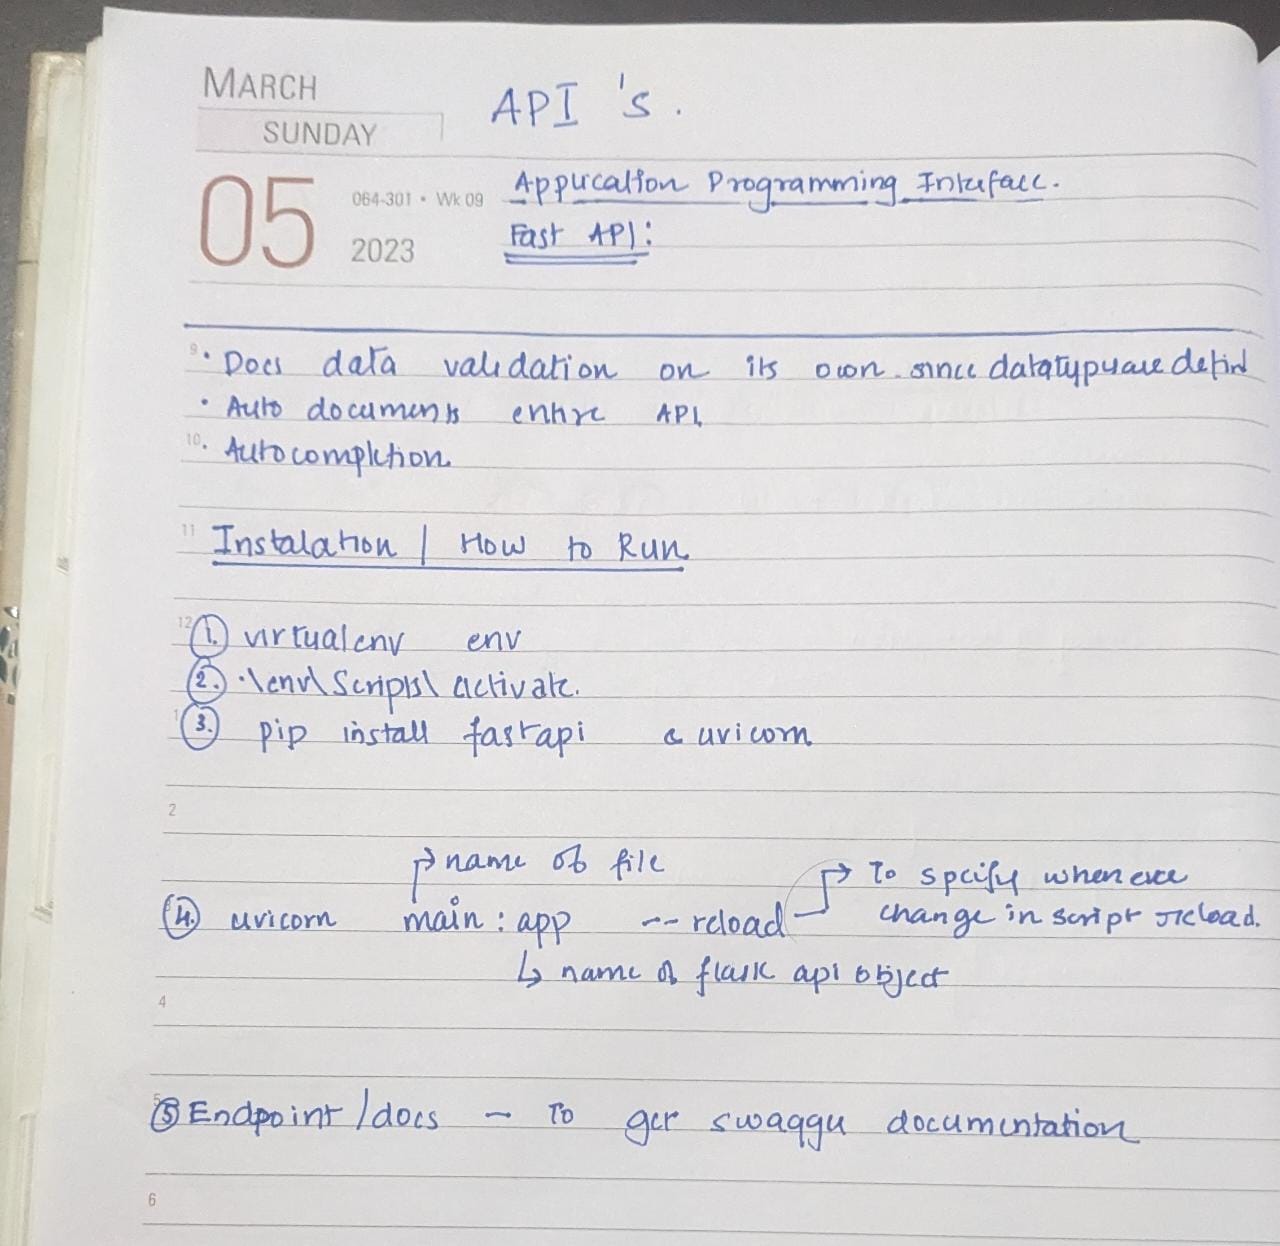 MARCH
SUNDAY
API's.
05
064-301 • Wk 09
2023
Application Programming Interface.
Fast API:
9
• Does data validation on its own. since datatypes are defind
• Auto documents entire API.
10
• Autocompletion
11
Instalation | How to Run
12
1. virtualenv env
2. .\env\Scripts\activate.
1
3. pip install fastapi & uvicorn
2
→ name of file
→ To spcify whenever
4. uvicorn main : app --reload
change in script reload.
↳ name of flask api object
4
5
5 Endpoint /docs - To get swagger documentation
6